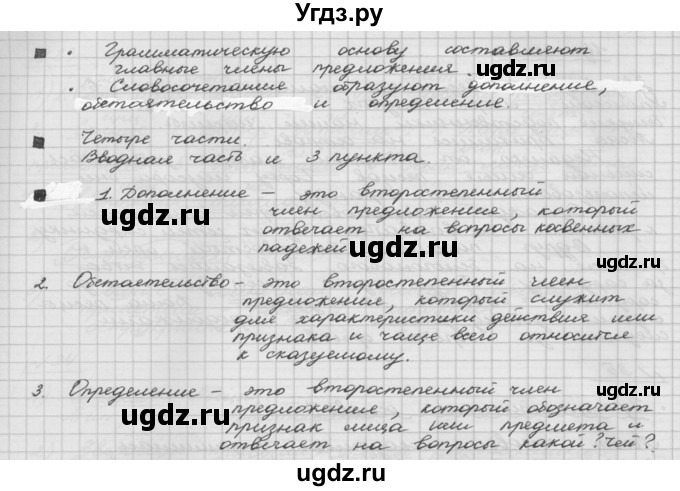 Угдз.ру
• Грамматическую основу составляют
главные члены предложения.
• Словосочетания образуют дополнение,
обстоятельство и определение.
Четыре части.
Вводная часть и 3 пункта.
1. Дополнение – это второстепенный
член предложения, который
отвечает на вопросы косвенных
падежей
2. Обстоятельство – это второстепенный член
предложения, который служит
для характеристики действия или
признака и чаще всего относится
к сказуемому.
3. Определение – это второстепенный член
предложения, который обозначает
признак лица или предмета и
отвечает на вопросы какой? Чей?
ugdz.ru
ugdz.ru
ugdz.ru
ugdz.ru
ugdz.ru
ugdz.ru
ugdz.ru
ugdz.ru
ugdz.ru